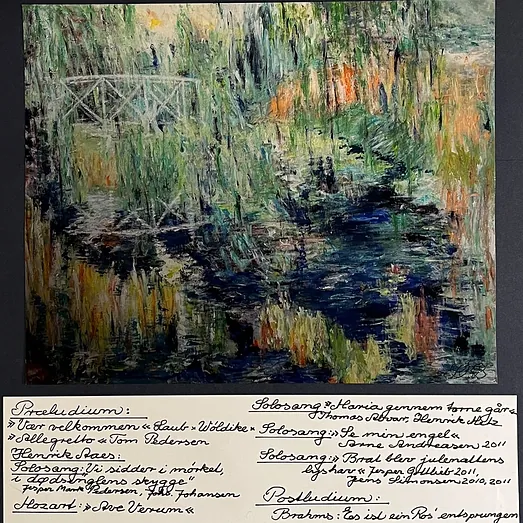 Præludium:
»Vær velkommen« Laub - Wöldike
»Allegretto« Tom Pedersen
Henrik Aaes:
Solosang: Vi sidder i mörket,
i dødsenglens skygge"
Jesper Mark Pedersen, Johansen
Mozart: »Ave Verum«
Solosang »Maria gennem torne går«
Thomas Henrik Metz
Solosang: »Se min engel«
Anne Andreasen 2011
Solosang: »Brat blev julenattens
lyshav« Jesper 2011,
Jens Simonsen 2010, 2011
Postludium:
Brahms: Es ist ein Ros' entsprungen